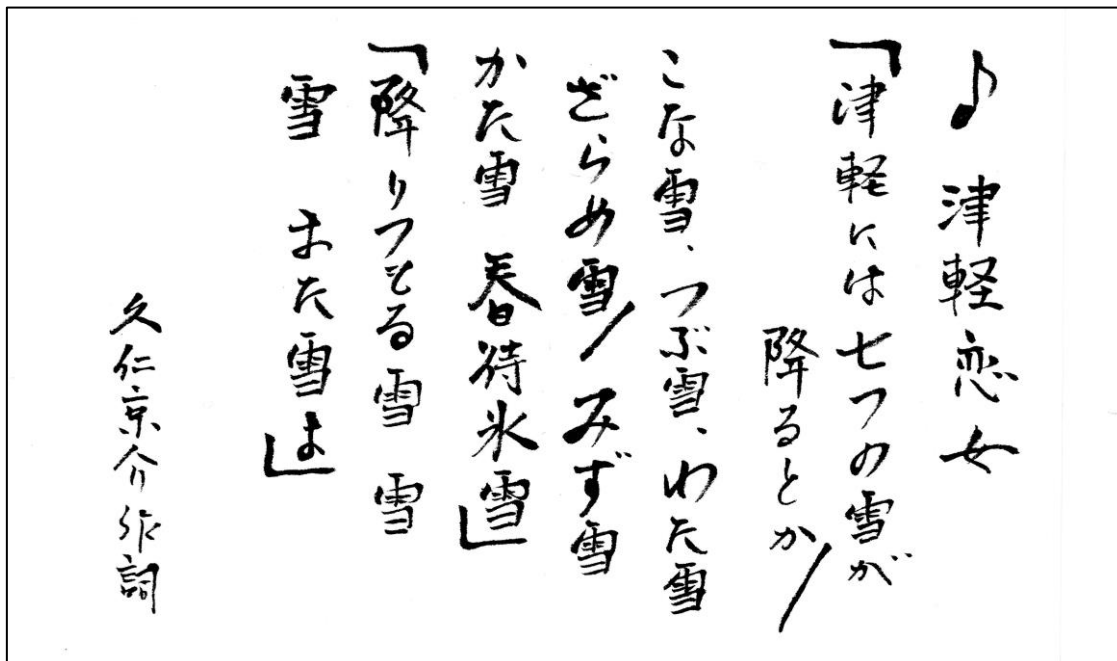 ♪ 津軽恋女
「津軽には七つの雪が
降るとか/
こな雪、つぶ雪、わた雪
ざらめ雪/みず雪
かた雪 春待氷雪」
「降りつもる雪 雪
雪 また雪よ」
久仁京介作詞